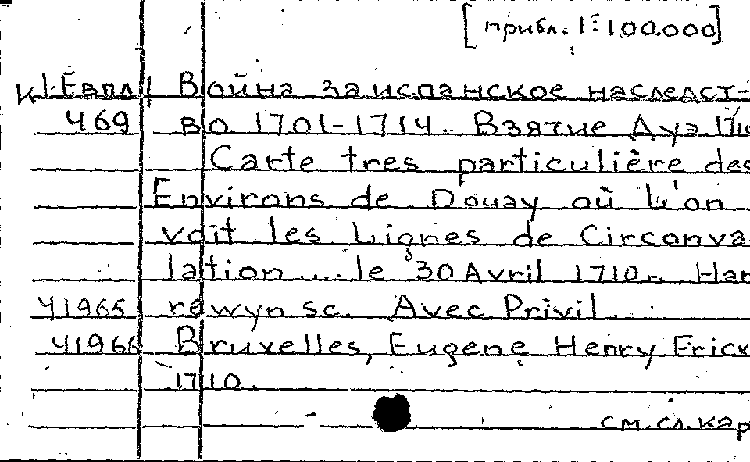 [прибл. 1:100.000]
К 1 Евпл Война за испанское наследст-
469 во 1701-1714. Взятие Дуэ 171
Carte tres particulière des
Environs de Douay où l'on
voit les Lignes de Circonva
lation ... le 30 Avril 1710. Har
41965 rewyn sc. Avec Privil.
41966 Bruxelles, Eugene Henry Fricx
1710.
см. сл. кар